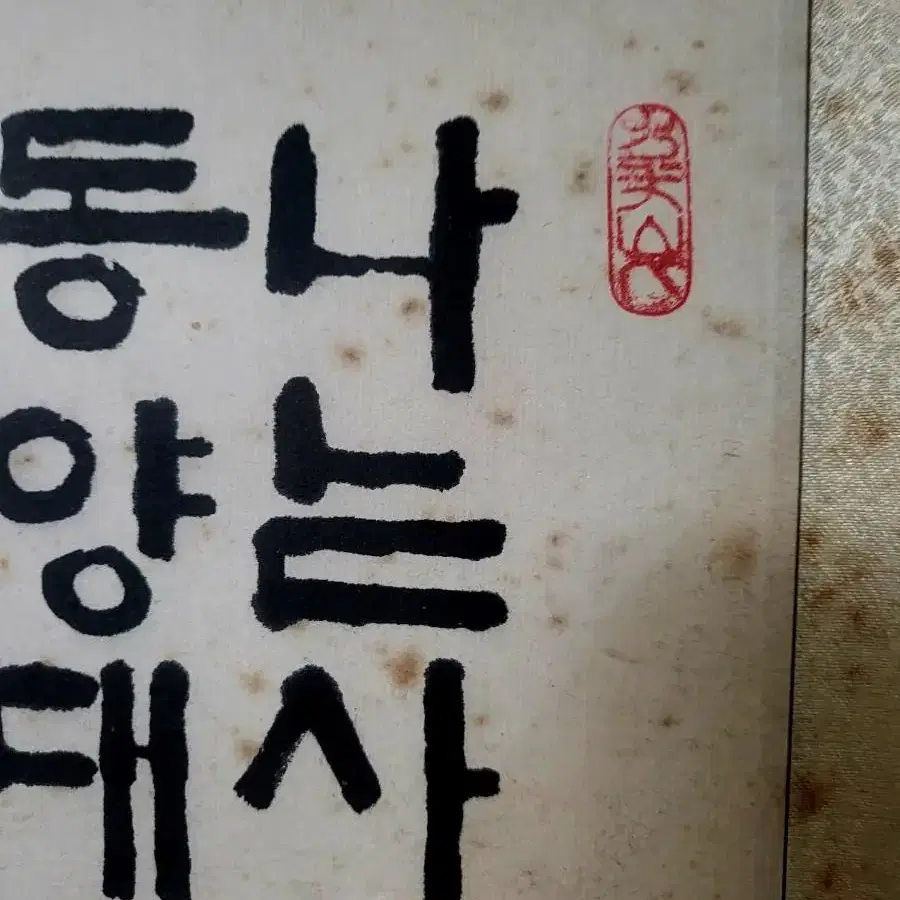 나는사
동양대